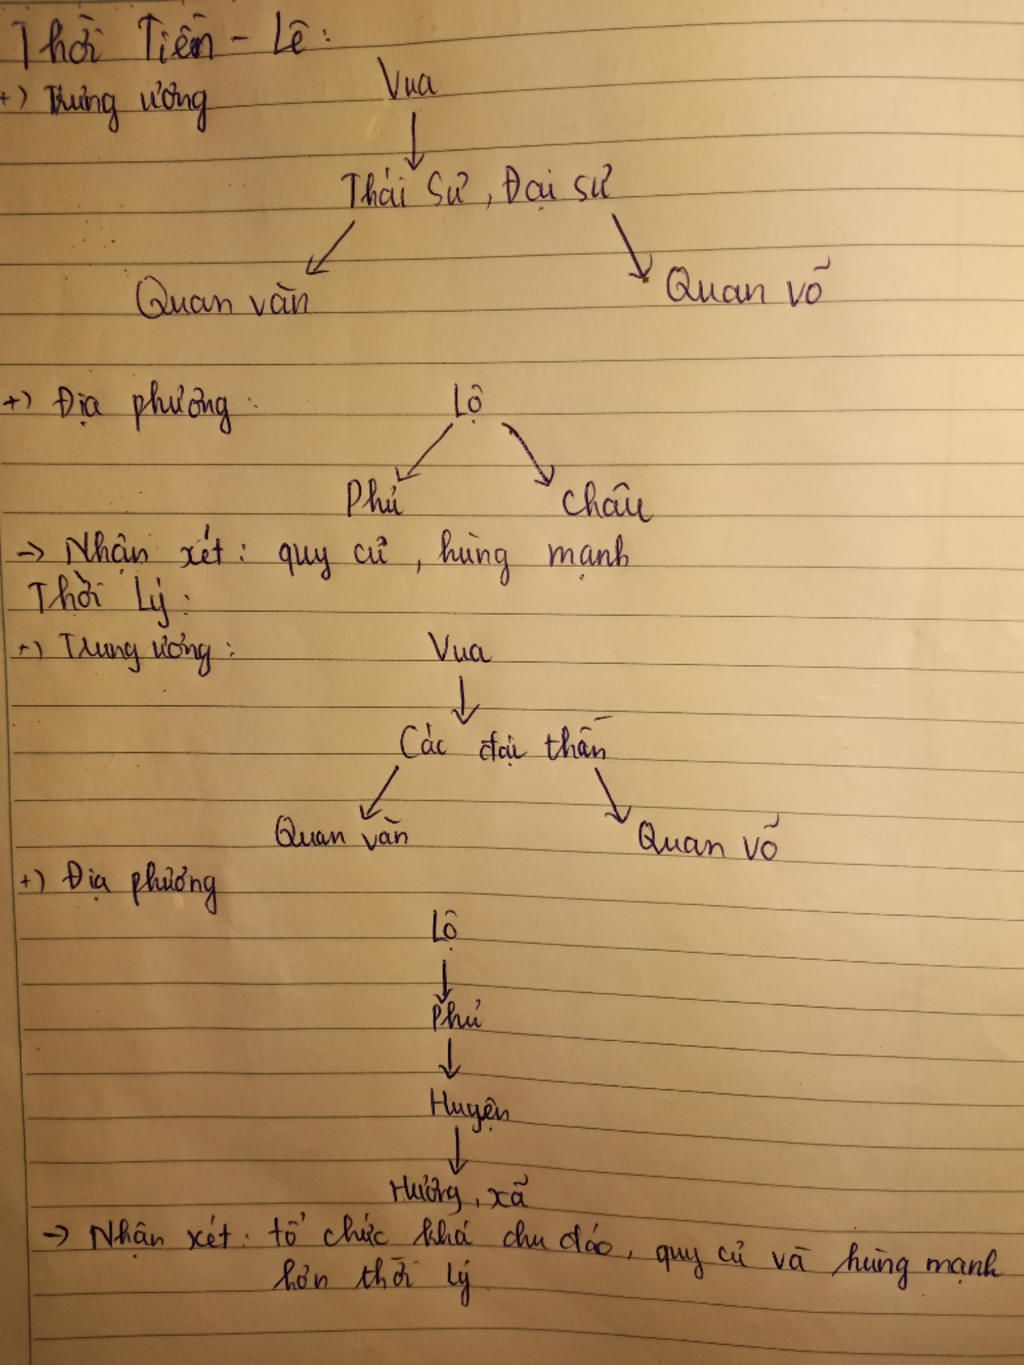 Thời Tiền - Lê:
+) Trung ương
Vua
Thái Sư, Đại sư
Quan văn
Quan võ
+) Địa phương:
Lộ
Phủ
Châu
-> Nhận xét: quy củ, hùng mạnh
Thời Lý:
+) Trung ương:
Vua
Các đại thần
Quan văn
Quan võ
+) Địa phương
Lộ
Phủ
Huyện
Hương, xã
-> Nhận xét: tổ chức khá chu đáo, quy củ và hùng mạnh
hơn thời Lý